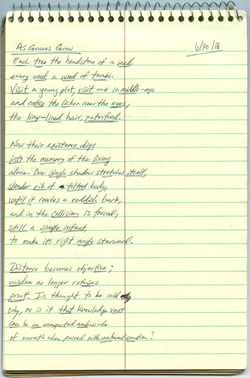 As Graves Grow
Each tree the headstone of a seed,
every weed a word of tombs.
Visit a young plot, visit one in middle-age
and notice the lichen near the ages,
the lime-lined hair, petrified.
Now their existence digs
into the memory of the living
alone. One single shadow stretches itself,
slender rib of a tilted body,
until it reaches a reddish bark,
and in the collision is thread,
still a simple infant,
to make its right angle starward.
Distance becomes objective;
wisdom no longer refuses
proof. Is thought to be cold
why, or is it that knowledge went
can be an unexpected
of warmth when paired with emotion?